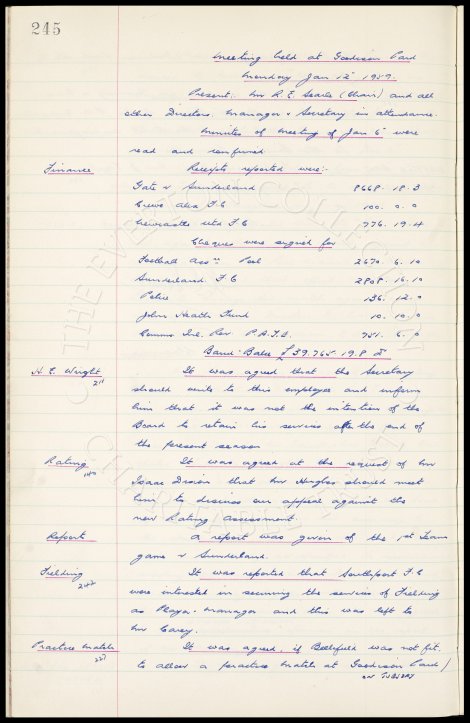 245
Meeting held at Goodison Park
Monday Jan 12th 1959.
Present. Mr R.E. Searle (Chair) and all
other Directors. Manager & Secretary in attendance.
Minutes of meeting of Jan 6th were
read and confirmed.
Finance Receipts reported were:-
Gate v Sunderland 8668 . 18 . 3
Crewe Alex F.C 100 . 0 . 0
Newcastle Utd F.C 776 . 19 . 4
Cheques were signed for
Football Assn Pool 2670 . 6 . 10
Sunderland F.C 2808 . 16 . 10
Police 136 . 12 . 0
John Heath Fund 10 . 10 . 0
Comms Inl. Rev. P.A.Y.E. 751 . 6 . 0
Bank Balce £39,765 . 19 . 8
H.E. Wright It was agreed that the Secretary
should write to this employee and inform
him that it was not the intention of the
Board to retain his services after the end of
the present season
Rating It was agreed at the request of Mr
Isaac Dixon that Mr Hughes should meet
him to discuss our appeal against the
new Rating assessment.
Report A report was given of the 1st Team
game v Sunderland.
Fielding It was reported that Southport F.C
242
were interested in securing the services of Fielding
as Player-Manager and this was left to
Mr Carey.
Practice Match It was agreed, if Bellefield was not fit,
227
to allow a practice match at Goodison Park/
on TUESDAY
THE EVERTON COLLECTION
CHARITABLE TRUST